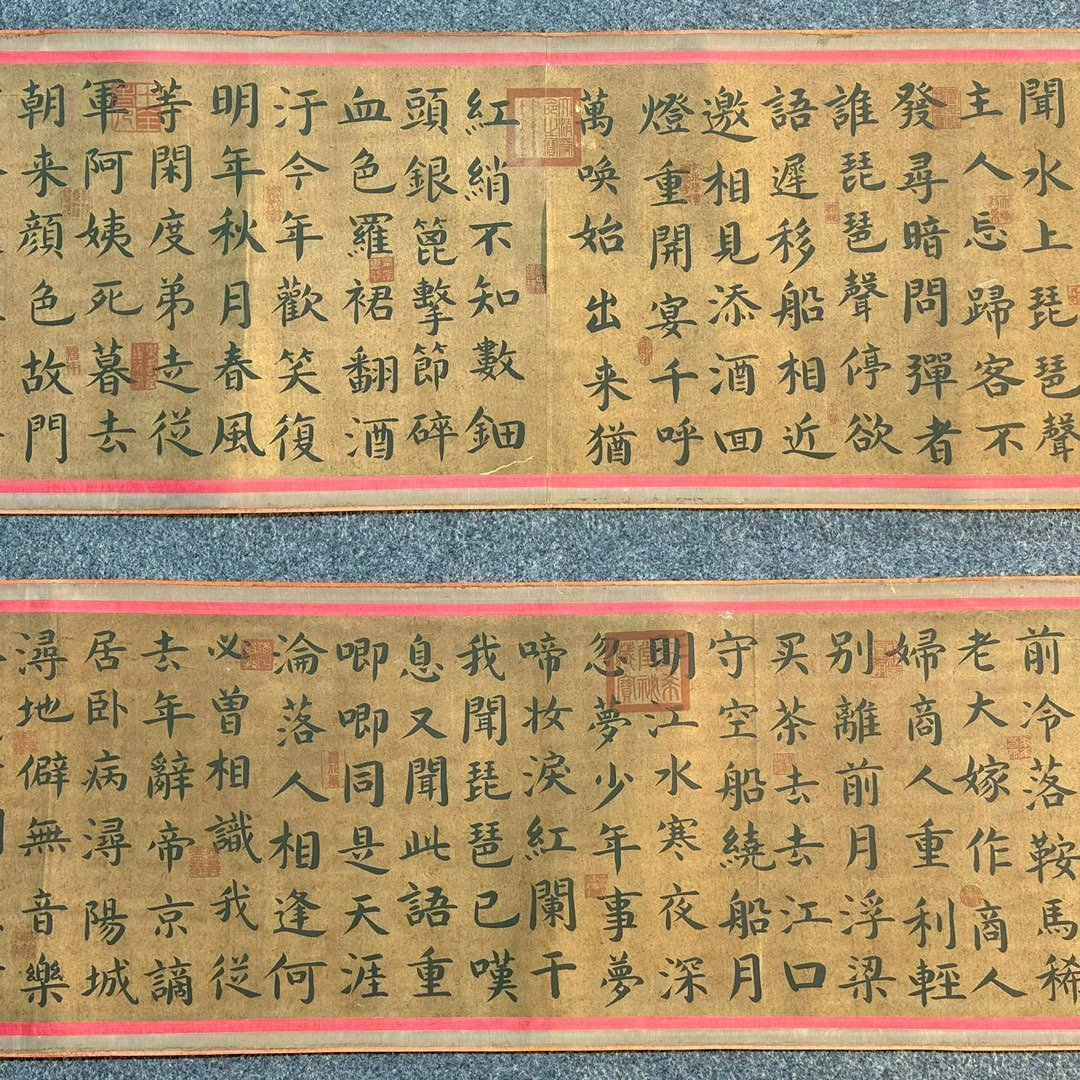 聞水上琵琶聲
主人忘歸客不
發尋暗問彈者
誰琵琶聲停欲
語遲移船相近
邀相見添酒囬
燈重開宴千呼
萬喚始出来猶
紅綃不知數鈿
頭銀篦擊節碎
血色羅裙翻酒
汙今年歡笑復
明年秋月春風
等閑度弟走從
軍阿姨死暮去
朝来顔色故門
前冷落鞍馬稀
老大嫁作商人
婦商人重利輕
别離前月浮梁
买茶去去江口
守空船繞船月
明江水寒夜深
忽夢少年事夢
啼妆淚紅闌干
我聞琵琶已嘆
息又聞此語重
唧唧同是天涯
淪落人相逢何
必曾相識我從
去年辭帝京謫
居卧病潯陽城
潯地僻無音樂